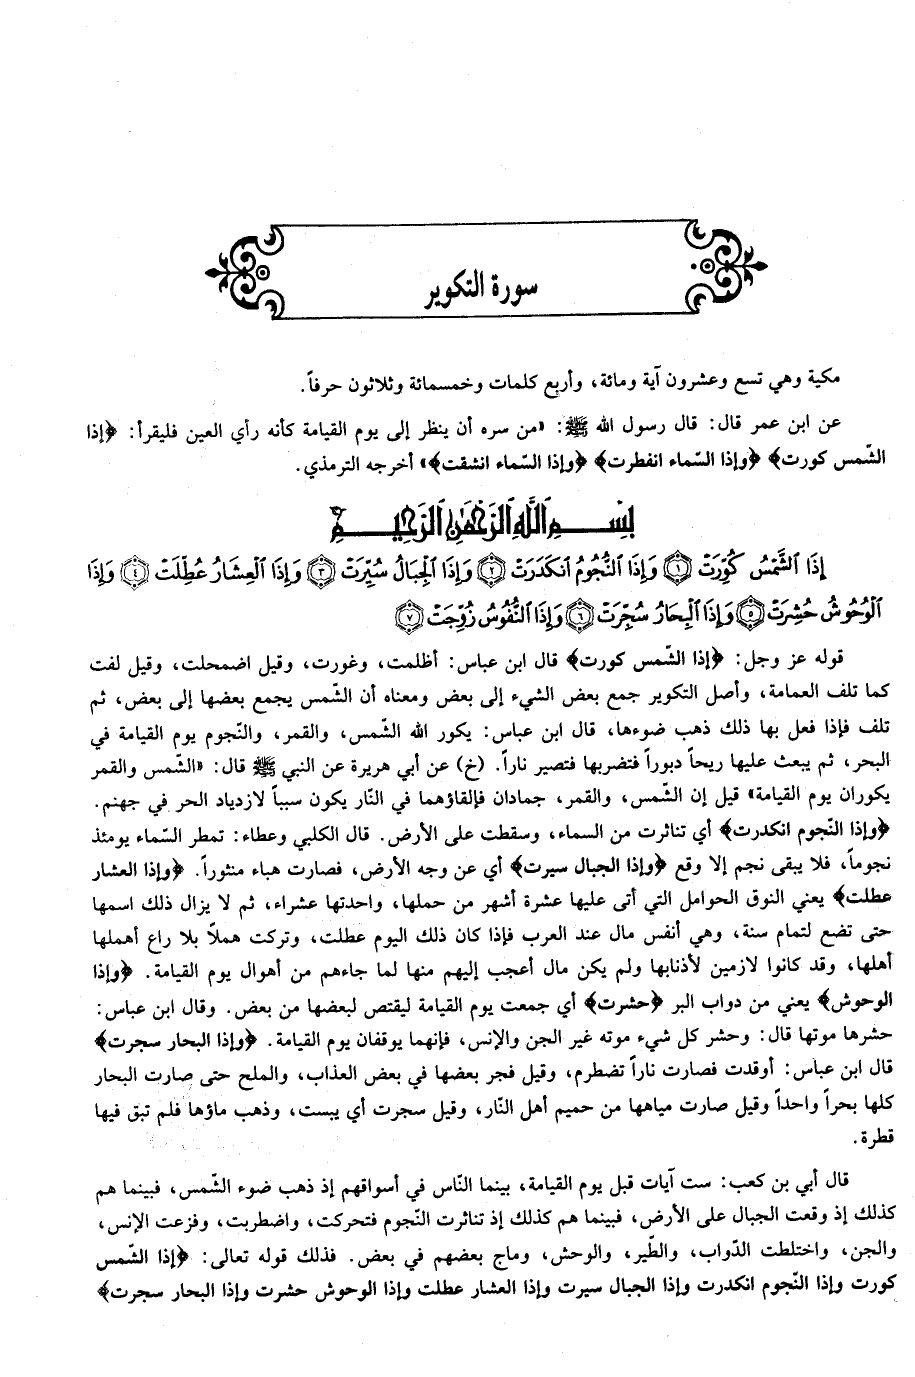 سورة التكوير
مكية وهي تسع وعشرون آية ومائة، وأربع كلمات وخمسمائة وثلاثون حرفاً.
عن ابن عمر قال: قال رسول الله ﷺ: «من سره أن ينظر إلى يوم القيامة كأنه رأي العين فليقرأ: ﴿إذا
الشّمس كورت﴾ ﴿وإذا السّماء انفطرت﴾ ﴿وإذا السّماء انشقت﴾» أخرجه الترمذي.
بِسْمِ اللَّهِ الرَّحْمَٰنِ الرَّحِيمِ
إِذَا ٱلشَّمْسُ كُوِّرَتْ ١ وَإِذَا ٱلنُّجُومُ ٱنكَدَرَتْ ٢ وَإِذَا ٱلْجِبَالُ سُيِّرَتْ ٣ وَإِذَا ٱلْعِشَارُ عُطِّلَتْ ٤ وَإِذَا
ٱلْوُحُوشُ حُشِرَتْ ٥ وَإِذَا ٱلْبِحَارُ سُجِّرَتْ ٦ وَإِذَا ٱلنُّفُوسُ زُوِّجَتْ ٧
قوله عز وجل: ﴿إذا الشّمس كورت﴾ قال ابن عباس: أظلمت، وغورت، وقيل اضمحلت، وقيل لفت
كما تلف العمامة، وأصل التكوير جمع بعض الشيء إلى بعض ومعناه أن الشّمس يجمع بعضها إلى بعض، ثم
تلف فإذا فعل بها ذلك ذهب ضوءها، قال ابن عباس: يكور الله الشّمس، والقمر، والنّجوم يوم القيامة في
البحر، ثم يبعث عليها ريحاً دبوراً فتضربها فتصير ناراً. (خ) عن أبي هريرة عن النبي ﷺ قال: «الشّمس والقمر
يكوران يوم القيامة» قيل إن الشّمس، والقمر، جمادان فإلقاؤهما في النّار يكون سبباً لازدياد الحر في جهنم.
﴿وإذا النّجوم انكدرت﴾ أي تناثرت من السماء، وسقطت على الأرض. قال الكلبي وعطاء: تمطر السّماء يومئذ
نجوماً، فلا يبقى نجم إلا وقع ﴿وإذا الجبال سيرت﴾ أي عن وجه الأرض، فصارت هباء منثوراً. ﴿وإذا العشار
عطلت﴾ يعني النوق الحوامل التي أتى عليها عشرة أشهر من حملها، واحدتها عشراء، ثم لا يزال ذلك اسمها
حتى تضع لتمام سنة، وهي أنفس مال عند العرب فإذا كان ذلك اليوم عطلت، وتركت هملاً بلا راع أهملها
أهلها، وقد كانوا لازمين لأذنابها ولم يكن مال أعجب إليهم منها لما جاءهم من أهوال يوم القيامة. ﴿وإذا
الوحوش﴾ يعني من دواب البر ﴿حشرت﴾ أي جمعت يوم القيامة ليقتص لبعضها من بعض. وقال ابن عباس:
حشرها موتها قال: وحشر كل شيء موته غير الجن والإنس، فإنهما يوقفان يوم القيامة. ﴿وإذا البحار سجرت﴾
قال ابن عباس: أوقدت فصارت ناراً تضطرم، وقيل فجر بعضها في بعض العذاب، والملح حتى صارت البحار
كلها بحراً واحداً وقيل صارت مياهها من حميم أهل النّار، وقيل سجرت أي يبست، وذهب ماؤها فلم تبق فيها
قطرة.
قال أبي بن كعب: ست آيات قبل يوم القيامة، بينما النّاس في أسواقهم إذ ذهب ضوء الشّمس، فبينما هم
كذلك إذ وقعت الجبال على الأرض، فبينما هم كذلك إذ تناثرت النّجوم فتحركت، واضطربت، وفزعت الإنس،
والجن، واختلطت الدّواب، والطّير، والوحش، وماج بعضهم في بعض. فذلك قوله تعالى: ﴿إذا الشّمس
كورت وإذا النّجوم انكدرت وإذا الجبال سيرت وإذا العشار عطلت وإذا الوحوش حشرت وإذا البحار سجرت﴾